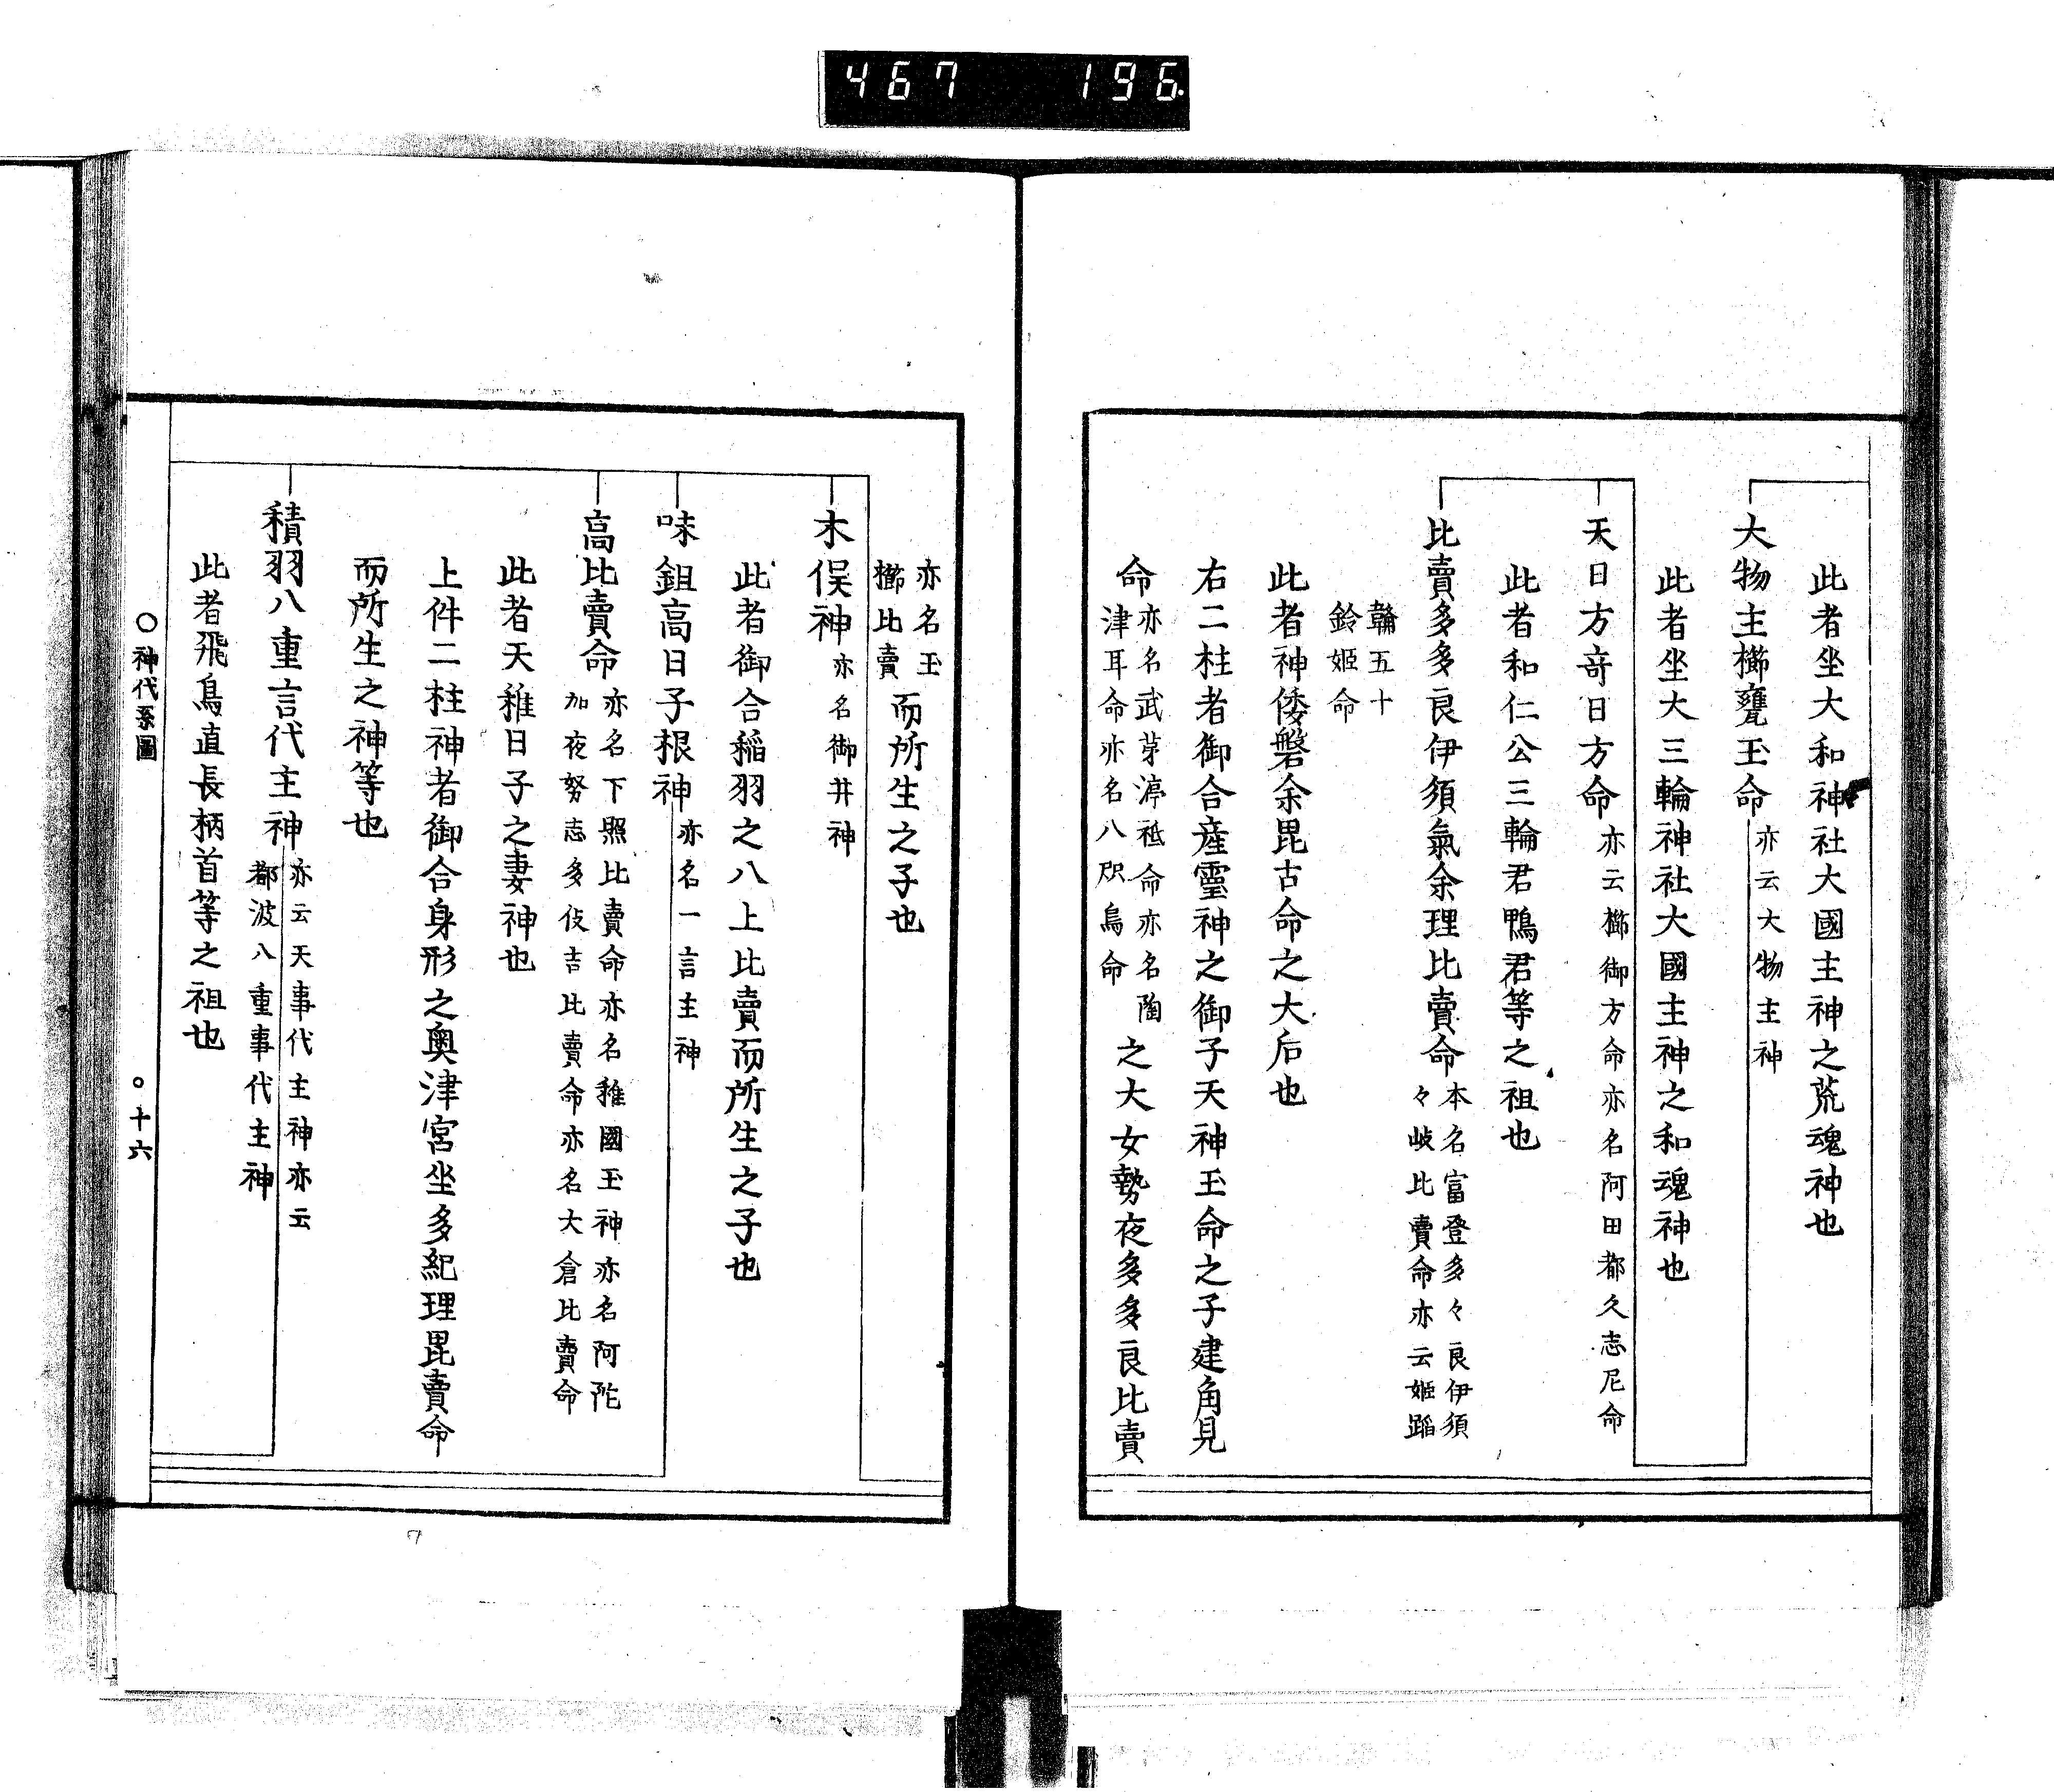 467 196
此者坐大和神社大國主神之荒魂神也
大物主櫛𤭖玉命
亦云大物主神
此者坐大三輪神社大國主神之和魂神也
天日方奇日方命
亦云櫛御方命亦名阿田都久志尼命
此者和仁公三輪君鴨君等之祖也
比賣多多良伊須氣余理比賣命
本名富登多々良伊須
々岐比賣命亦云姬蹈
鞴五十
鈴姬命
此者神倭磐余毘古命之大后也
右二柱者御合産靈神之御子天神玉命之子建角見
命
亦名武茅渟祗命亦名陶
津耳命亦名八咫烏命
之大女勢夜多多良比賣
亦名玉
櫛比賣
而所生之子也
木俣神
亦名御井神
此者御合稲羽之八上比賣而所生之子也
味鉏高日子根神
亦名一言主神
高比賣命
亦名下照比賣命亦名稚國玉神亦名阿陀
加夜努志多伎吉比賣命亦名大倉比賣命
此者天稚日子之妻神也
上件二柱神者御合身形之奧津宮坐多紀理毘賣命
而所生之神等也
積羽八重言代主神
亦云天事代主神亦云
都波八重事代主神
此者飛鳥直長柄首等之祖也
○神代系圖
○十六